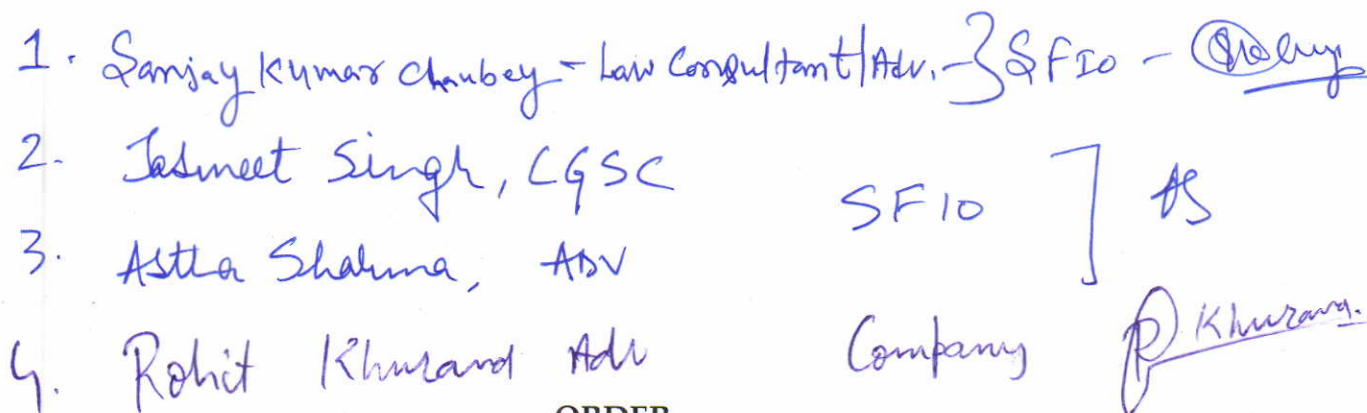 1. Sanjay Kumar Chaubey - Law Consultant/Adv. -} SFIO -
2. Jasmeet Singh, CGSC SFIO ] AS
3. Astha Sharma, ADV
4. Rohit Khurana Adv Company Khurana.
ORDER